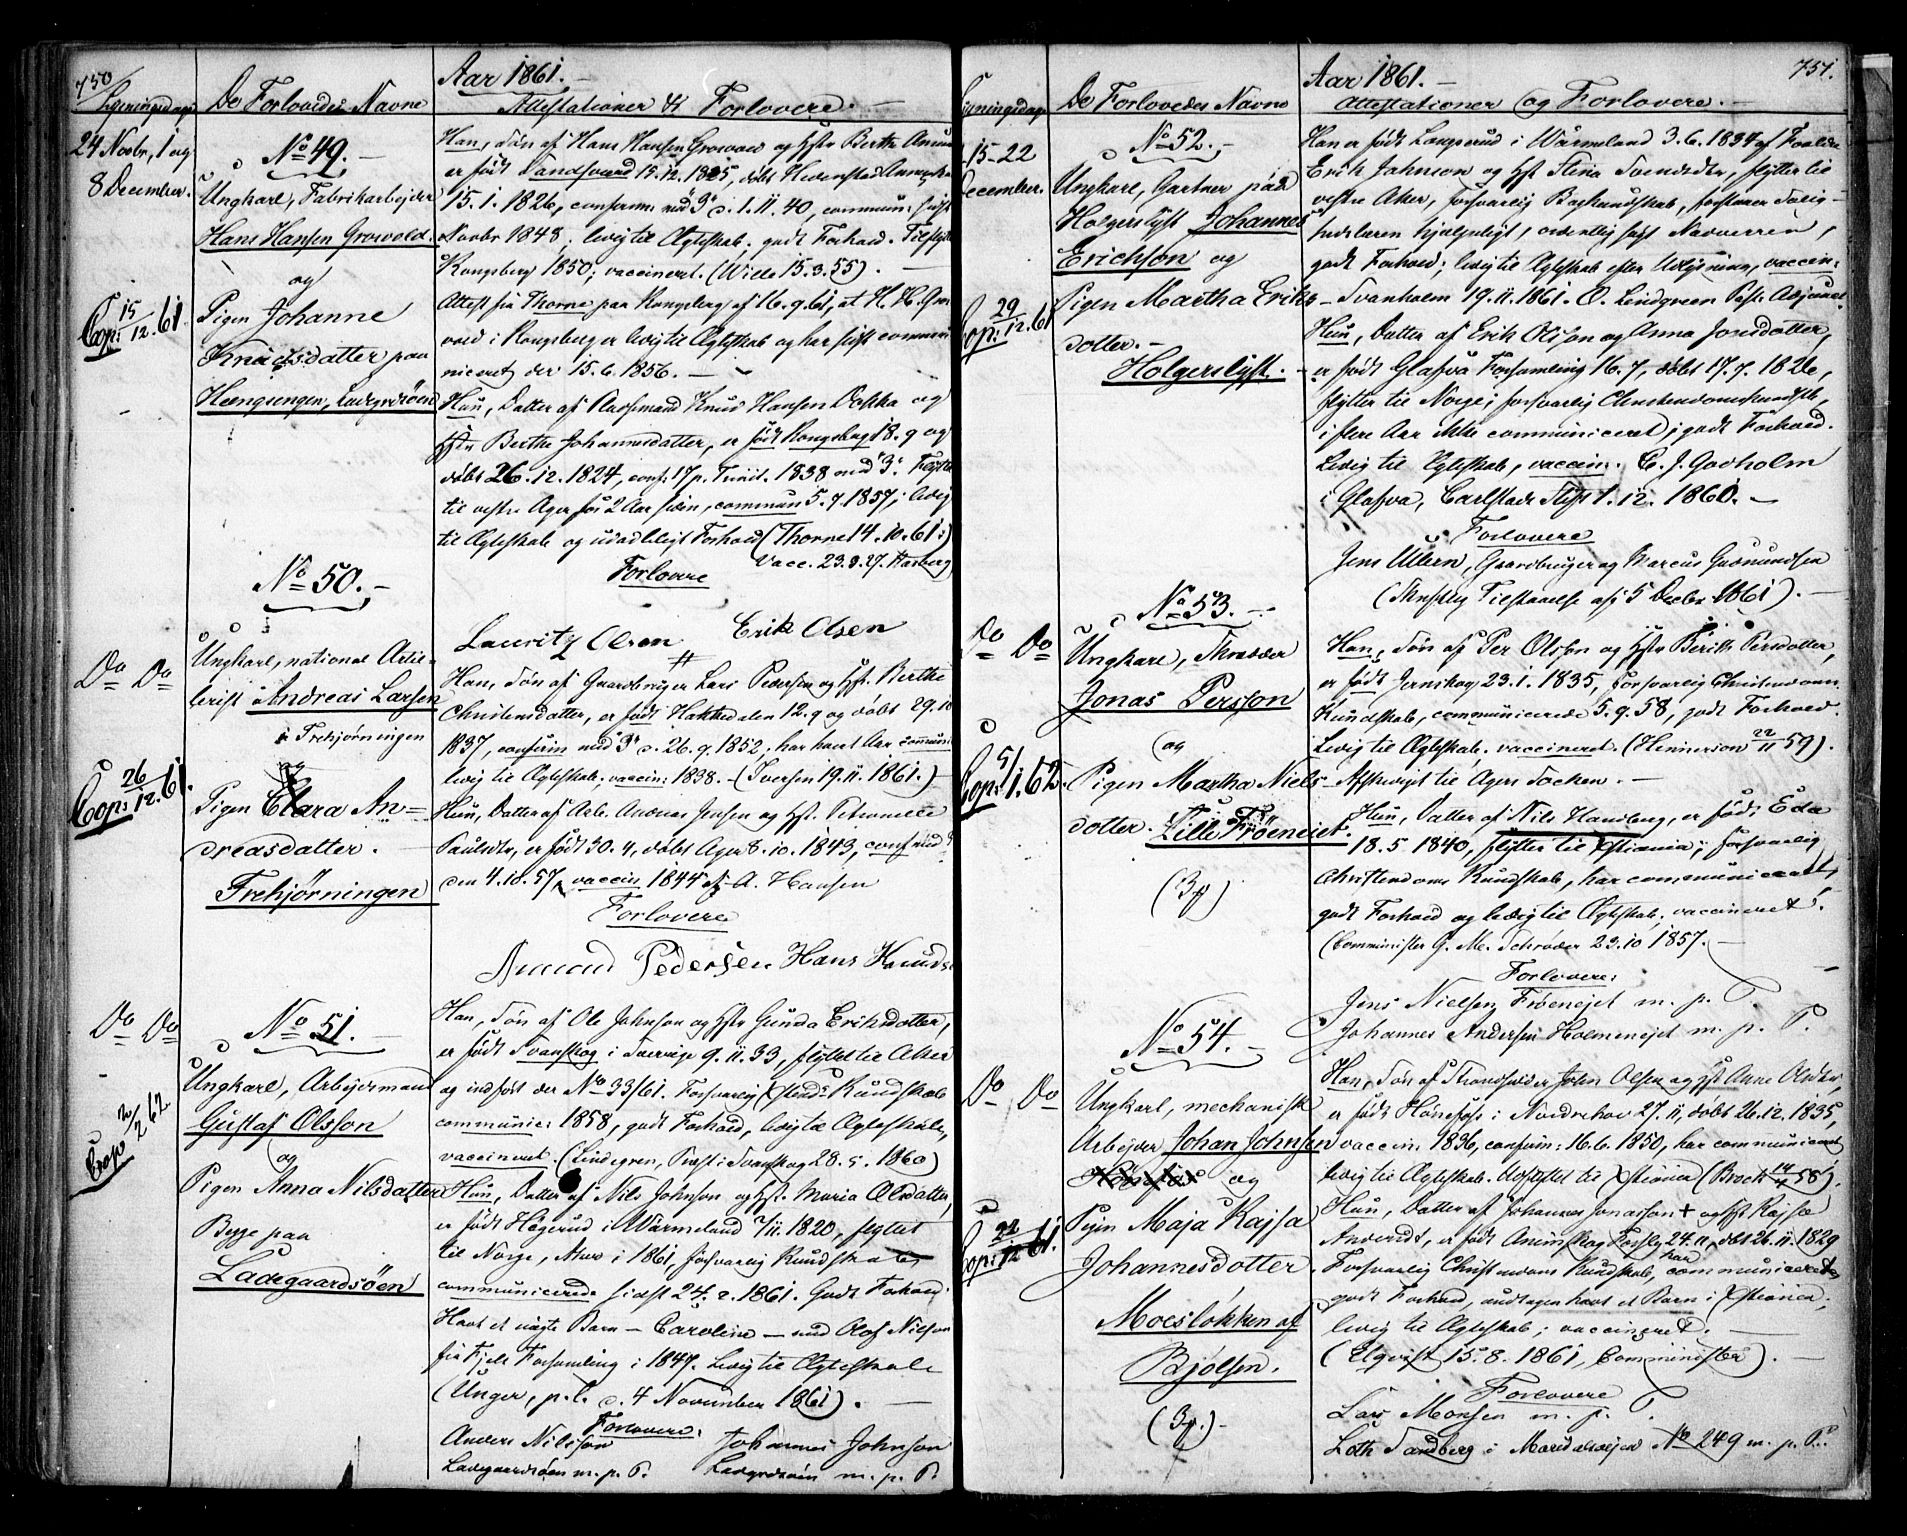 750
Aar 1861.
Lysningsdage
De Forlovedes Navne
Attestationer & Forlovere.
24 Novbr, 1 og
8 December.
No 49.
Ungkarl, Fabrikarbeider
Hans Hansen Grosvold
og
Pigen Johanne
Knudsdatter paa
Heengsengen, Ladegrdsöen
Cop: 15/12.61
Han, Søn af Hans Hansen Grosvold og Hstr Berthe
er født Sandsværd 15.12.1825, døbt Hedenstad
15.1.1826, confirm: med 3 d. 1.11.40, commun: sidst
Novbr 1848. ledig til Ægteskab. godt Forhold. Tilflyttet
Kongsberg 1850; vaccineret. (Wille 15.3.55).
Attest fra Thorne paa Kongsberg af 16.9.61, at H. H. Gros
vold i Kongsberg er ledig til Ægteskab og har sidst commu
niceret der 15.6.1856.
Hun, Datter af Knud Hansen Dokka og
Hstr Berthe Johannesdatter, er født Kongsberg 18.9 og
døbt 26.12.1824, conf: 17 p. Trinit. 1838 med "3".
til vestre Ager for 2 Aar siden, commun 5.7.1857; ledig
til Ægteskab og udadleligt Forhold (Thorne 14.10.61.)
Vacc. 23.9.27.
Forlovere
Lauritz Olsen Erik Olsen
No 50.
Do Do
Ungkarl, national Artil-
lerist Andreas Larsen
i Frehjørningen
og
Pigen Clara An-
dreasdatter.
Frehjørningen
Cop: 26/12.61.
Han, Søn af Gaardbruger Lars Pedersen og Hst. Berthe
Christensdatter, er født Hakkedalen 12.9 og døbt 29.10
1837, confirm med 3 d. 26.9.1852, har havt Aar commun:
ledig til Ægteskab; vaccin: 1838. (Iversen 19.11.1861.)
Hun, Datter af Arb. Andreas Jensen og Hst. Petronelle
Paulsdtr, er født 30.4, døbt Ager 8.10.1843, conf med
den 4.10.57, vaccin 1844 af A. Hansen
Forlovere
Amund Pedersen Hans Knuds
No 51.
Do Do
Ungkarl, Arbeidsmand
Gustaf Olsson
og
Pigen Anna Nilsdatter
Begge paa
Ladegaardsöen
Cop 2/2 62
Han, Søn af Ole Johnson og Hstr Gunda Eriksdotter,
er født Svanskog i Sverrige 9.11.33, flyttet til Aker
og indført der No 33/61. Forsvarlig Xstends Kundskab
communic: 1858, godt Forhold, ledig til Ægteskab,
vaccineret. (Lindegren, Præst i Svanskog 28.5.1860)
Hun, Datter af Nils Johnson og Hst. Maria Olsdatter,
er født Högerud i Wärmeland 7/11.1820, flyttet
til Norge, Aker i 1861, forsvarlig Kundskab,
communicerede sidst 24.2.1861. Godt Forhold.
Havt et uægte Barn - Caroline - med Olof Nilson
fra Fjels Forsamling i 1847. Ledig til Ægteskab
(Unger, p.t. d. 4 November 1861).
Forlovere:
Anders Nilsson Johannes Johnson
Ladegaardsöen m. p. P. Ladegrdsöen m. p. P.
751.
Aar 1861.
Lysningsdage
De Forlovedes Navne
Attestationer og Forlovere.
15-22
December.
No 52.
Ungkarl, Gartner paa
Holgerslyst Johannes
Erichson og
Pigen Martha Eriks
dotter.
Holgerslyst.
Cop: 29/12.61
Han er født Langserud i Wärmeland 3.6.1834 af Forældre
Erik Johnson og Hst Stina Svensdtr, flytter til
vestre Aker, forsvarlig Bogkundskab, forstaaer Salig-
hedslæren hjelpeligt, ordentlig søgt Nadverren,
godt Forhold; ledig til Ægteskab efter Udlysning, vaccin:
Svanholm 19.11.1861. O. Lindgreen Past. Adjunct.
Hun, Datter af Erik Olsson og Anna Jonsdatter,
er født Glafva Forsamling 16.7, døbt 17.7.1826,
flytter til Norge; forsvarlig Christendomskundskb,
i flere Aar ikke communiceret; godt Forhold.
Ledig til Ægteskab, vaccin. C. J. Godholm
i Glafva, Carlstads Stift 1.12.1860.
Forlovere
Jens Ullern, Gaardbruger og Marcus Gudmundsen
(Skriftlig Tilstaaelse af 5 Decbr 1861).
No 53.
Do Do
Ungkarl,
Jonas Persson
og
Pigen Martha Niels
dotter. Lille Frøeneiet.
(Bg)
Cop: 5/1.62.
Han, Søn af Per Olsson og Hstr Berith Persdotter,
er født Jernskog 23.1.1835, forsvarlig Christendoms
Kundskab, communicerede 5.9.58, godt Forhold.
Ledig til Ægteskab. vaccineret. (Heinrichson 22/11 59).
Afskediget til Agers Socken.
Hun, Datter af Nils Handberg, er født Eda
18.5 1840, flytter til Xstiania; forsvarlig
Christendoms Kundskab, har communiceret,
godt Forhold og ledig til Ægteskab; vaccineret.
(Comminister G. M. Schrøder 23.10 1857.
Forlovere:
Jens Nielsen Frøenejet m. p. P.
Johannes Andersen Holmenejet m. p. P.
No 54.
Do Do
Ungkarl, mechanisk
Arbejder Johan Johnsen
og
Pigen Maja Kajsa
Johannesdotter
Moesløkken af
Bjølsen.
(Bg.)
Cop: 22/12 61.
Han, Søn af Strandsidder John Olsen og Hst Anne Olsdtr,
er født Hønefos i Norderhov 27.11, døbt 26.12.1835,
vaccin: 1836, confirm: 16.6.1850, har communiceret
ledig til Ægteskab. Udflyttet til Xstiania (Brock 14/4 58).
Hun, Datter af Johannes Jonasson + og Hst Kajsa
Andersdt, er født Animskog 24.11, døbt 26.11.1829
Forsvarlig Christendoms Kundskab, har communiceret,
godt Forhold, undtagen havt et Barn i Xstiania;
ledig til Ægteskab; vaccineret.
(Elgvist 15.8.1861, Comminister).
Forlovere
Lars Monsen m. p. P.
Loth Sandberg i Maridalsvejen No 249 m. p. P.